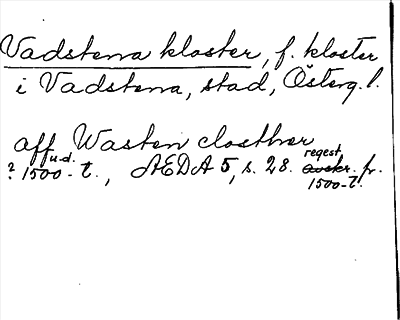 Vadstena kloster, f. kloster
i Vadstena, stad, Österg. l.
aff Wasten closther
u.d.
? 1500-t., AEDA 5, s. 28. regest fr.
1500-t.